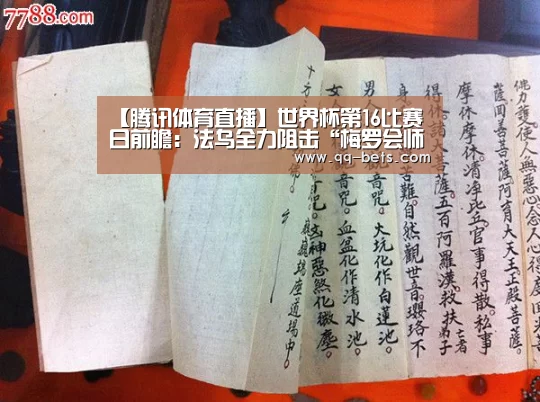 7788.com
【腾讯体育直播】世界杯第16比赛
日前瞻：法乌全力阻击“梅罗会师
www.qq-bets.com
佛力護。使人無惡心。念人心得度
薩。聞善菩薩阿育大天王正殿菩薩。
摩休摩休。清净比丘。官事得散。私事
得休。諸大菩薩。五百阿羅漢。救扶亡者弟子
身。苦難。自然觀世音。瓔珞不
男人音咒。火坑化作白蓮池。
女音咒。血盆化作清水池。
咒。凶神惡煞化微塵。
巍巍端座道場中。